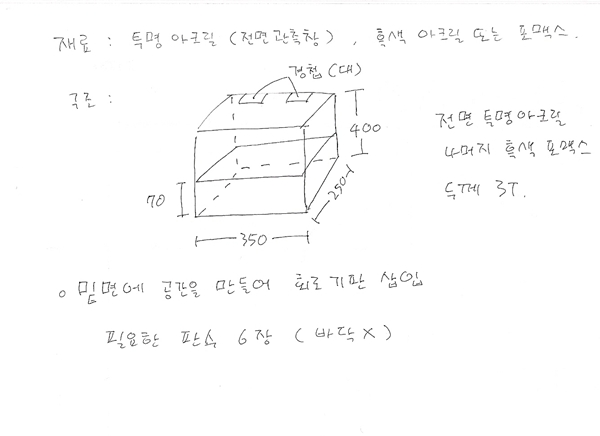 재료 : 투명 아크릴 (전면관측창) , 흑색 아크릴 또는 포맥스.
경첩 (대)
구조 :
400
전면 투명아크릴
나머지 흑색 포맥스
두께 3T.
250
70
350
o 밑면에 공간을 만들어 회로기판 삽입
필요한 판수 6장 ( 바닥 X )